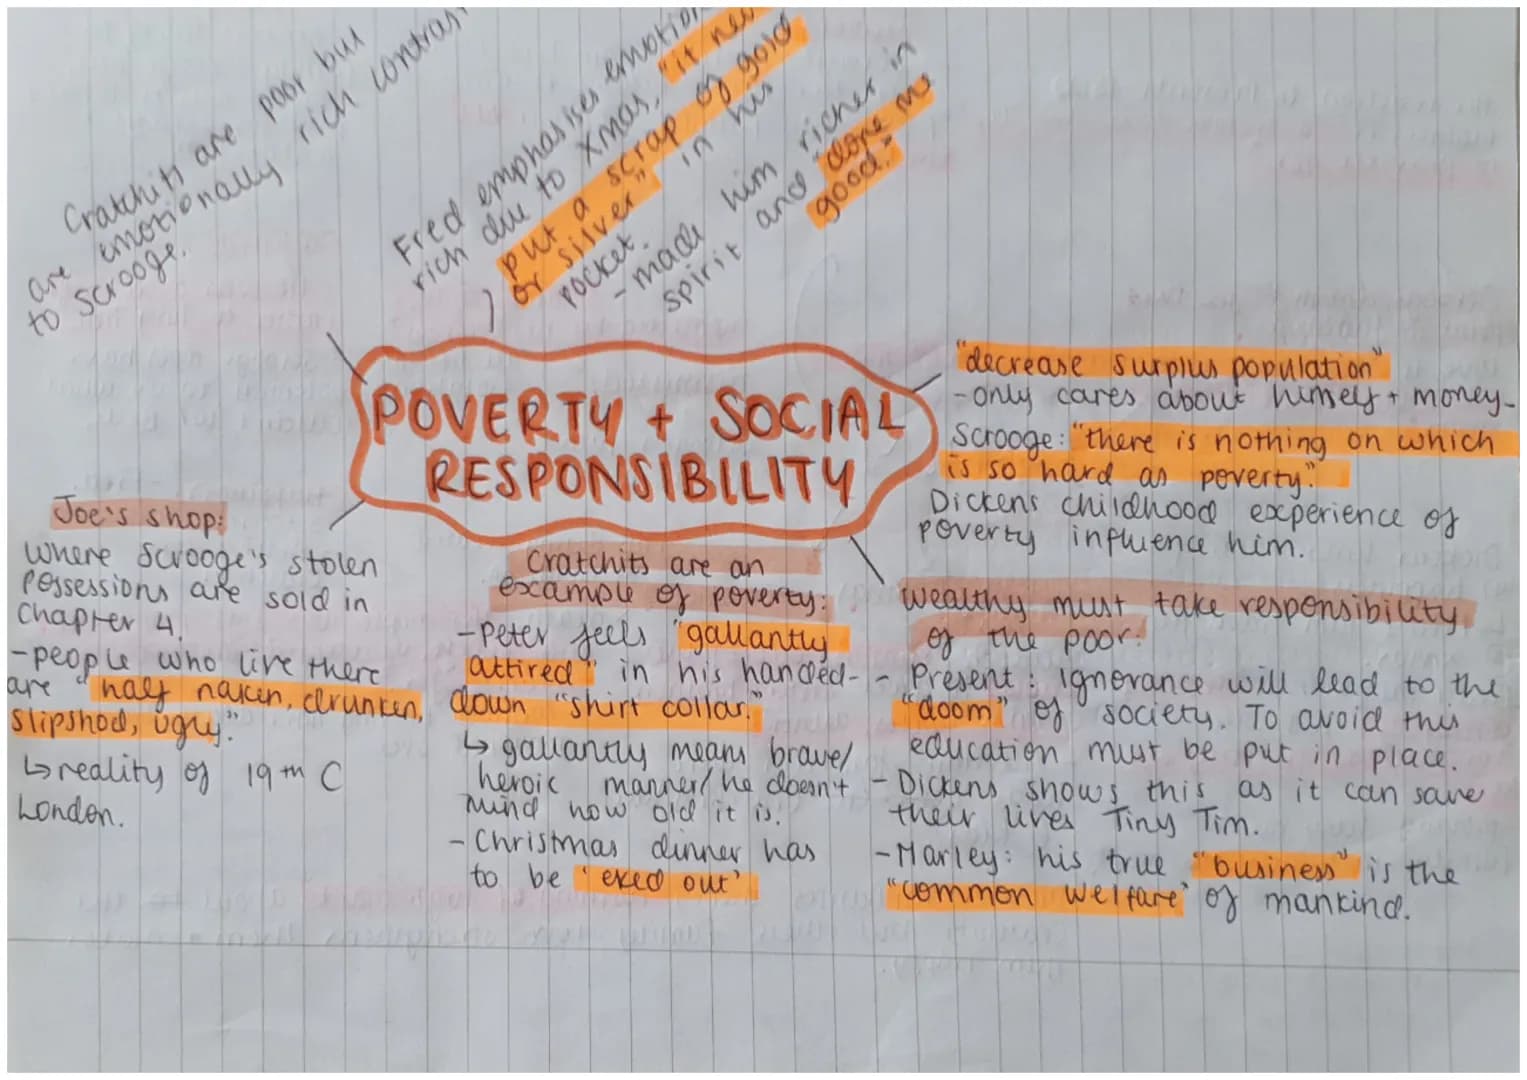 Cratchits are poor but
are emotionally rich contrast
to scrooge.
Fred emphasises emotion
rich due to Xmas, "it nev
put a scrap of gold
or silver" in his
pocket.
- made him richer in
spirit and "done me
good."
POVERTY + SOCIAL
RESPONSIBILITY
"decrease surplus population"
- only cares about himself + money.
Scrooge: "there is nothing on which
is so hard as poverty."
Dickens childhood experience of
poverty influence him.
Joe's shop:
where Scrooge's stolen
possessions are sold in
Chapter 4.
- people who live there
are "half naken, drunken,
slipshod, ugly."
↳ reality of 19th C
London.
Cratchits are an
example of poverty:
- Peter feels "gallantly
attired" in his handed-
down "shirt collar."
↳ gallantly means brave/
heroic manner/ he doesn't
mind how old it is.
- Christmas dinner has
to be 'eked out'
Wealthy must take responsibility
of the poor:
- Present: ignorance will lead to the
"doom" of society. To avoid this
education must be put in place.
- Dickens shows this as it can save
their lives Tiny Tim.
- Marley: his true "business" is the
"common welfare" of mankind.